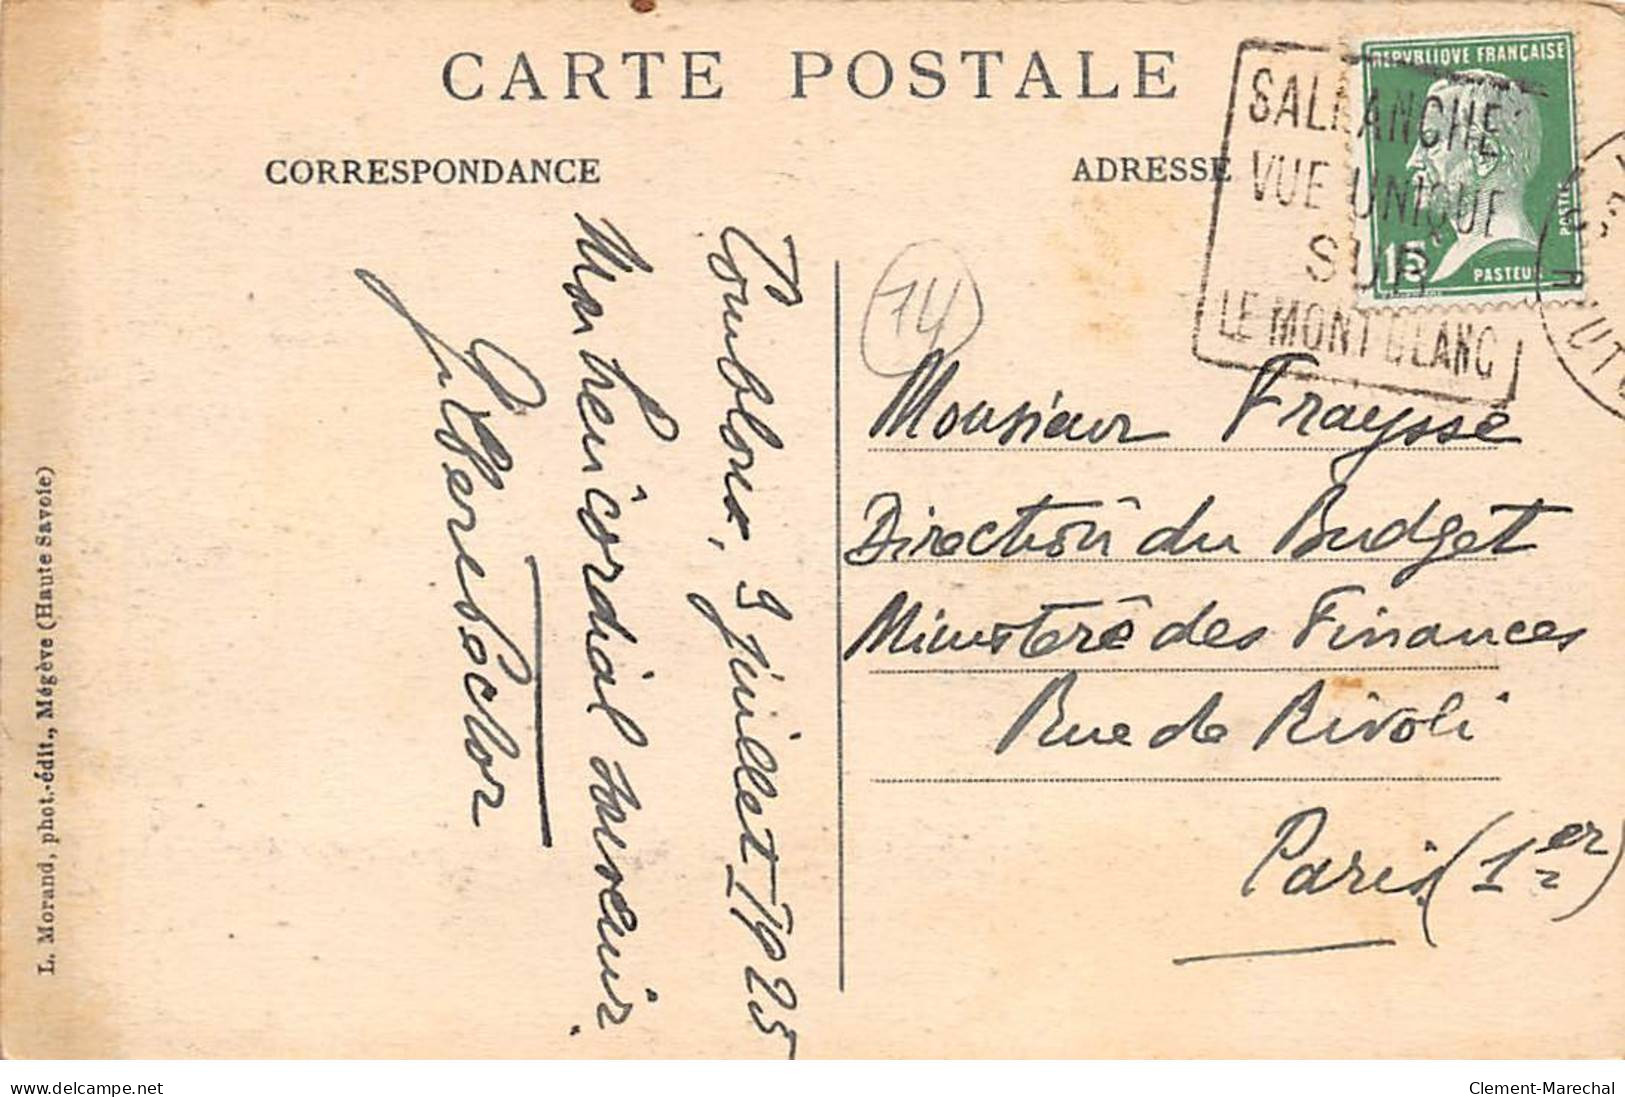 CARTE POSTALE
CORRESPONDANCE
ADRESSE
REPVBLIQUE FRANÇAISE
POSTES
15
PASTEUR
SALLANCHES
VUE UNIQUE
SUR
LE MONT BLANC
14
Combloux, 9 juillet 1925
Mon très cordial souvenir.
Monsieur Fraysse
Direction du Budget
Ministère des Finances
Rue de Rivoli
Paris (1er)
L. Morand, phot.-édit., Mégève (Haute Savoie)
www.delcampe.net
Clement-Marechal